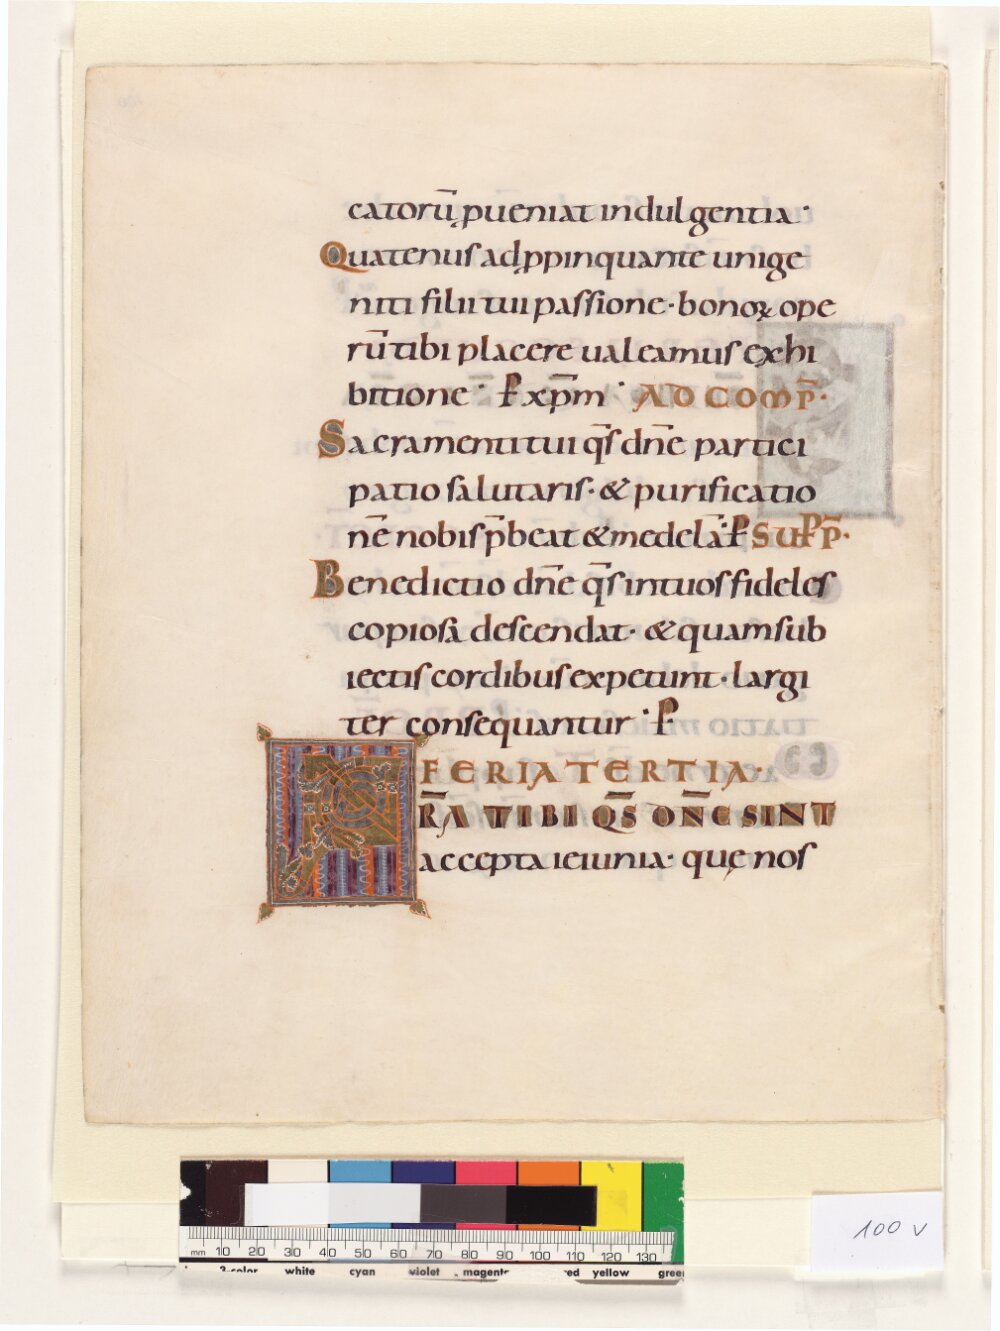 catorū ꝓueniat indulgentia·
Quatenus adꝓpinquante unige
niti filii tui passione· bonoꝝ ope
rū tibi placere ualeamus exhi
bitione· P xp̄m· AD COMP̄·
Sacramenti tui q̄s dn̄e partici
patio salutaris· & purificatio
nē nobis p̄beat & medelā· P SUPP̄·
Benedictio dn̄e q̄s in tuos fideles
copiosa descendat· & quam sub
iectis cordibus expetunt· largi
ter consequantur· P
FERIA TERTIA·
R̄A TIBI Q̄S DN̄E SINT
accepta ieiunia· quę nos
100 v
mm 10 20 30 40 50 60 70 80 90 100 110 120 130
3-color white cyan violet magenta red yellow green